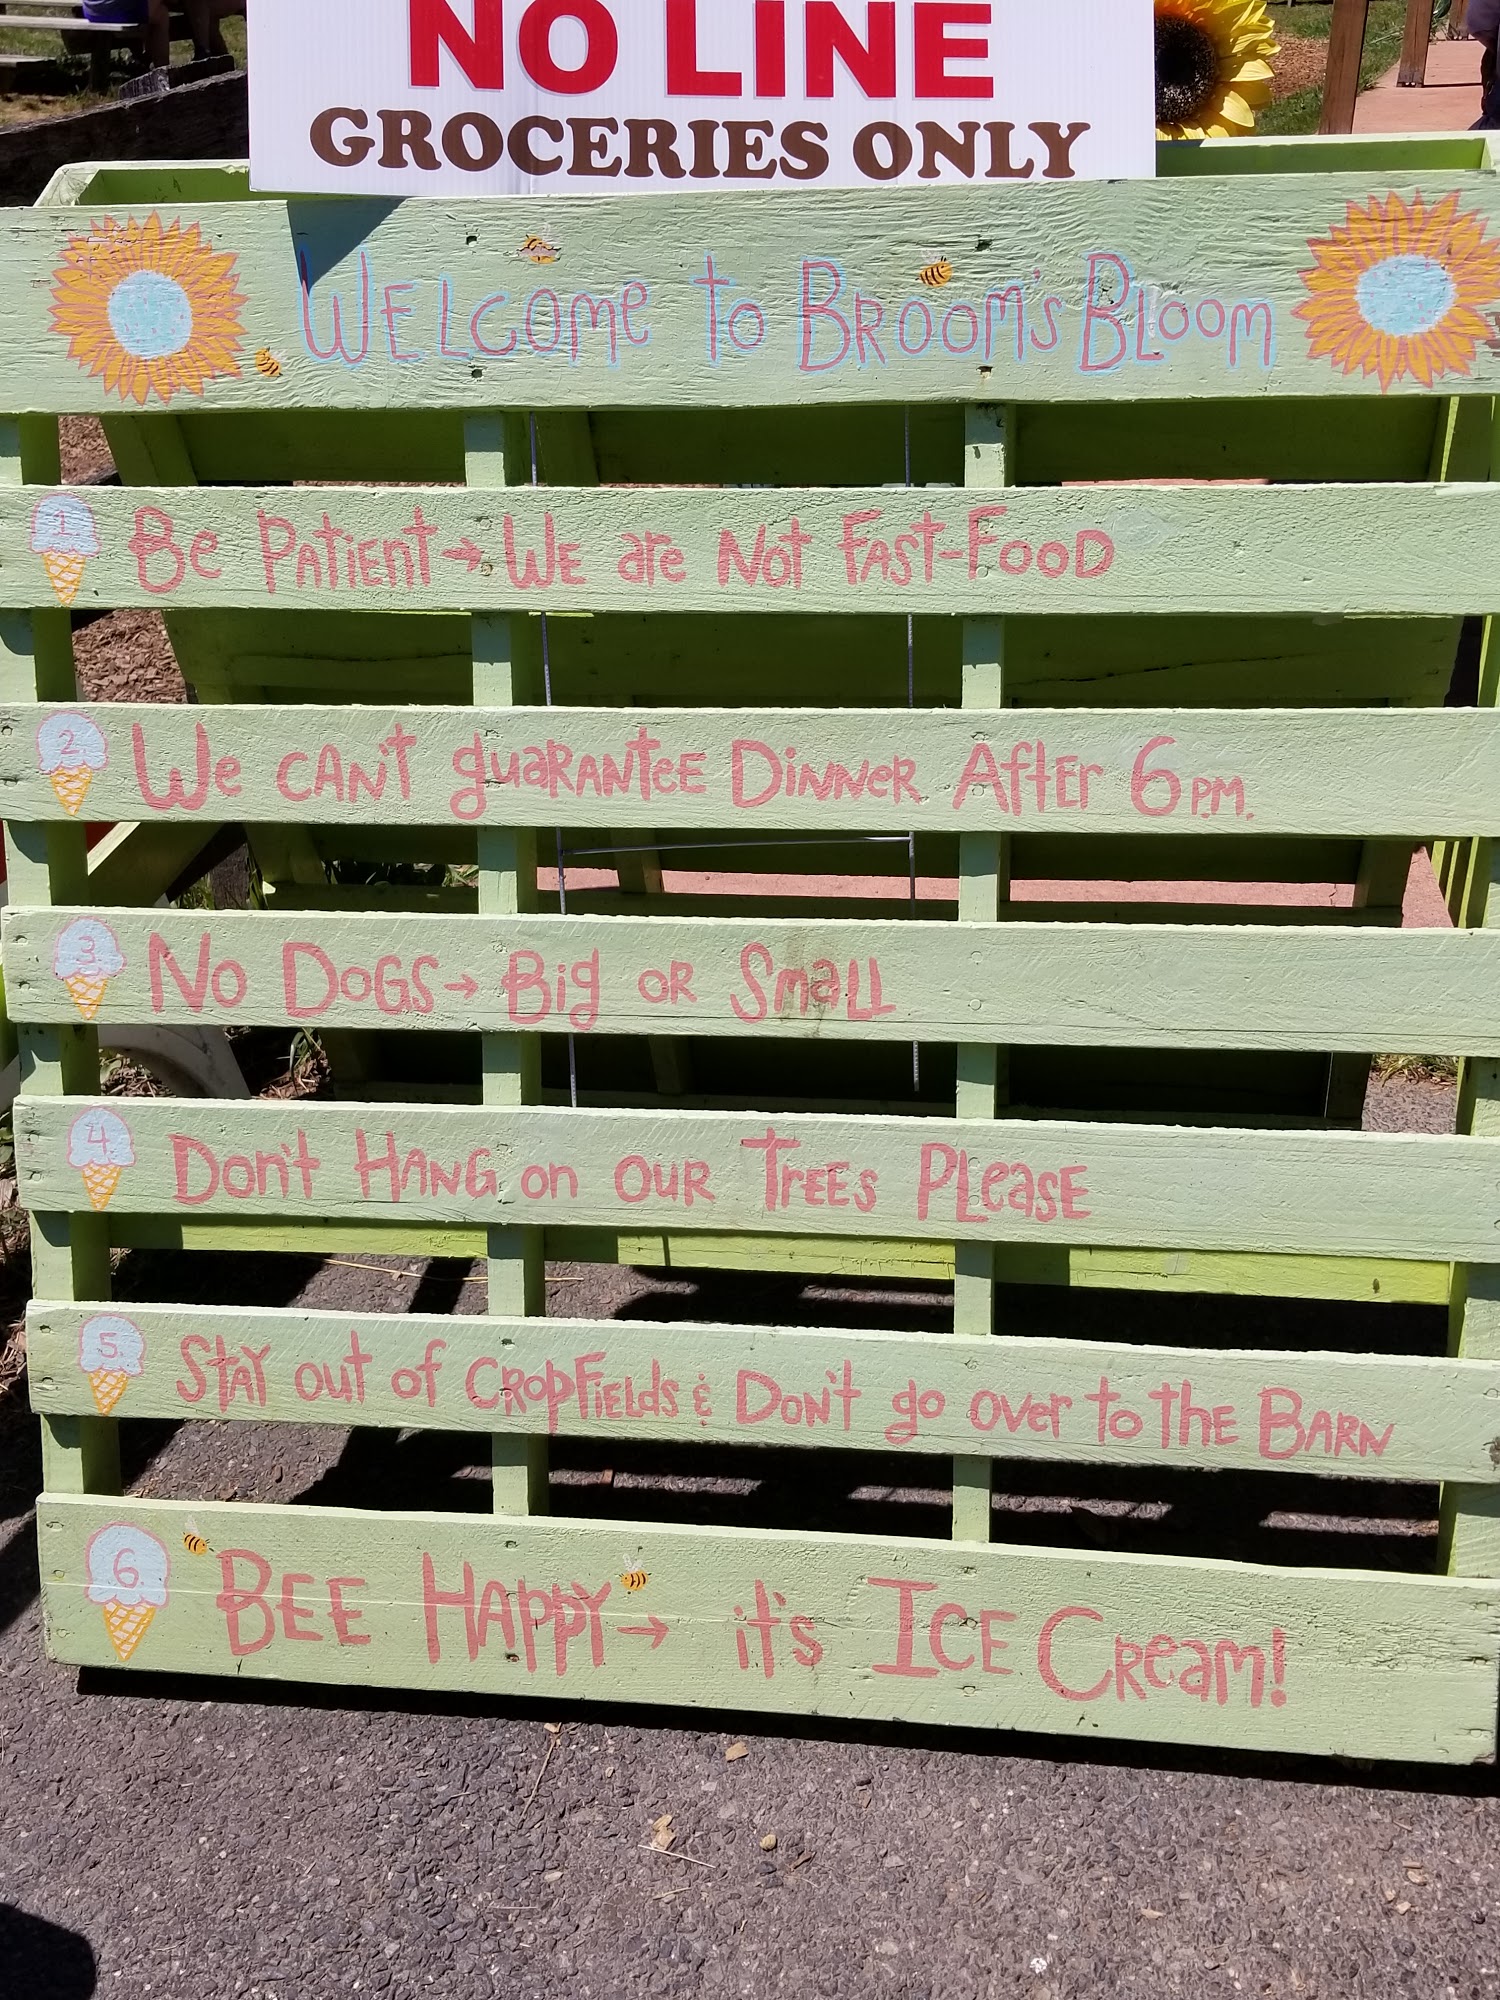 NO LINE
GROCERIES ONLY
WELcome to BROOM'S BLoom
1 Be PATiEnt → WE are Not FAST-FooD
2 We CAN'T guaRANteE DiNNeR AftEr 6 P.M.
3 No DoGS → Big oR SmaLL
4 Don't HANG on OUR TrEEs PLeasE
5. StAY out of CRopFiELds & DoN't go over to thE BARN
6. BEE HAppy → it's ICE CReam!